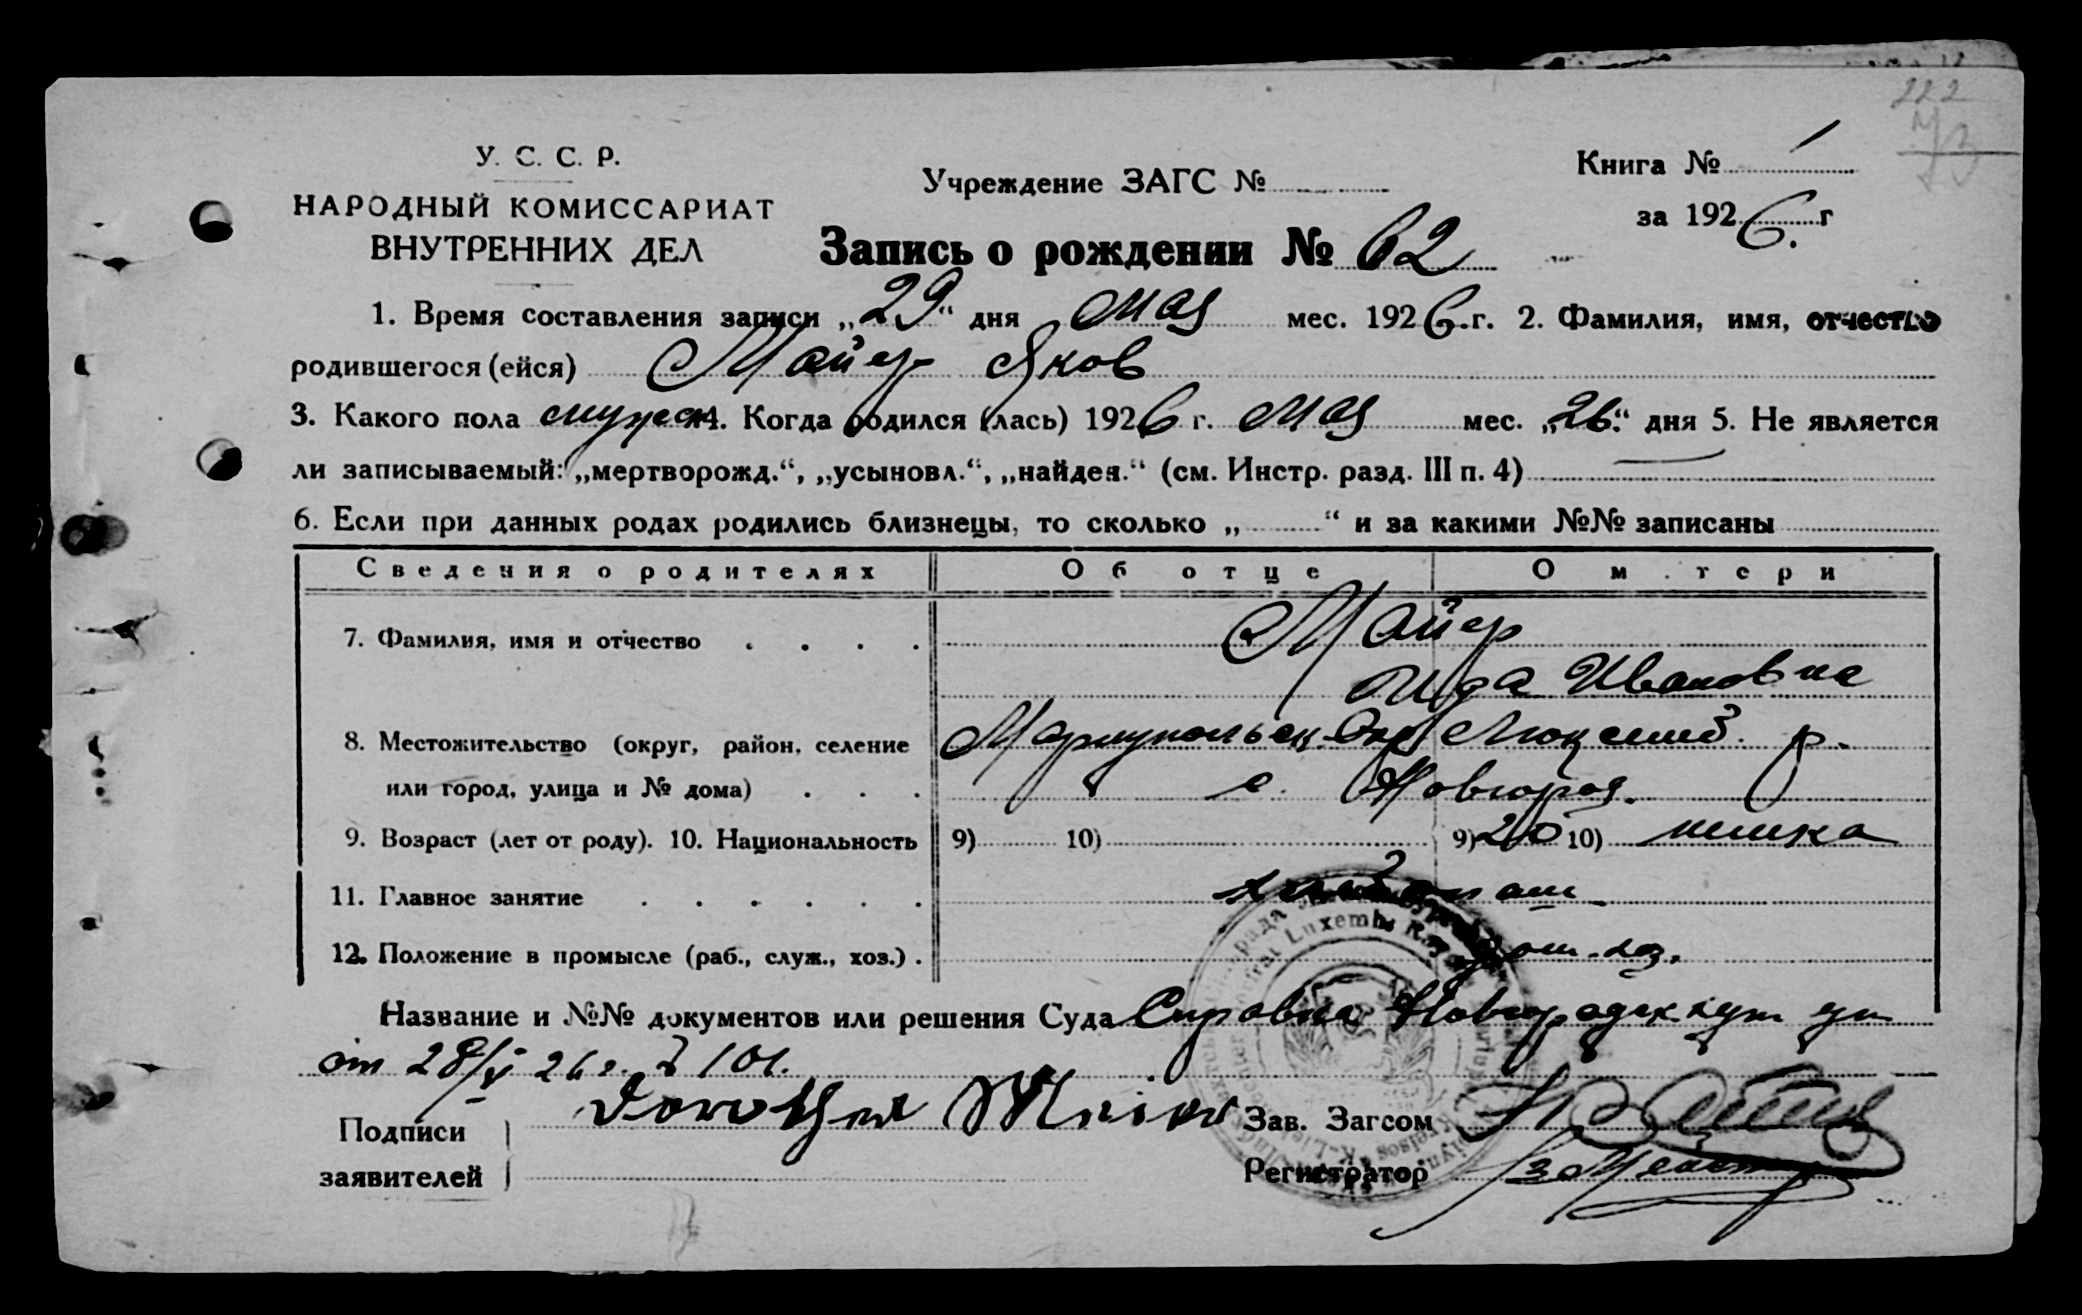 222
73
У. С. С. Р.
НАРОДНЫЙ КОМИССАРИАТ
ВНУТРЕННИХ ДЕЛ
Учреждение ЗАГС №
Книга № 1
за 1926 г
Запись о рождении № 62
1. Время составления записи „29“ дня мая мес. 1926 г. 2. Фамилия, имя, отчество
родившегося (ейся) Майер Яков
3. Какого пола мужск 4. Когда родился (лась) 1926 г. мая мес. „26“ дня 5. Не является
ли записываемый: „мертворожд.“, „усыновл.“, „найден.“ (см. Инстр. разд. III п. 4) —
6. Если при данных родах родились близнецы, то сколько „ “ и за какими №№ записаны
Сведения о родителях Об отце О матери
7. Фамилия, имя и отчество . . . . Майер
Ида Ивановна
8. Местожительство (округ, район, селение Мариупольск. Окр Люксемб. р.
или город, улица и № дома) . . . с. Новгород.
9. Возраст (лет от роду). 10. Национальность 9) 10) 9) 20 10) немка
11. Главное занятие . . . . . .
12. Положение в промысле (раб., служ., хоз.) .
Название и №№ документов или решения Суда Справка Новгород
от 28/V 26 г. № 101.
Подписи Dorothea Meier Зав. Загсом
заявителей Регистратор